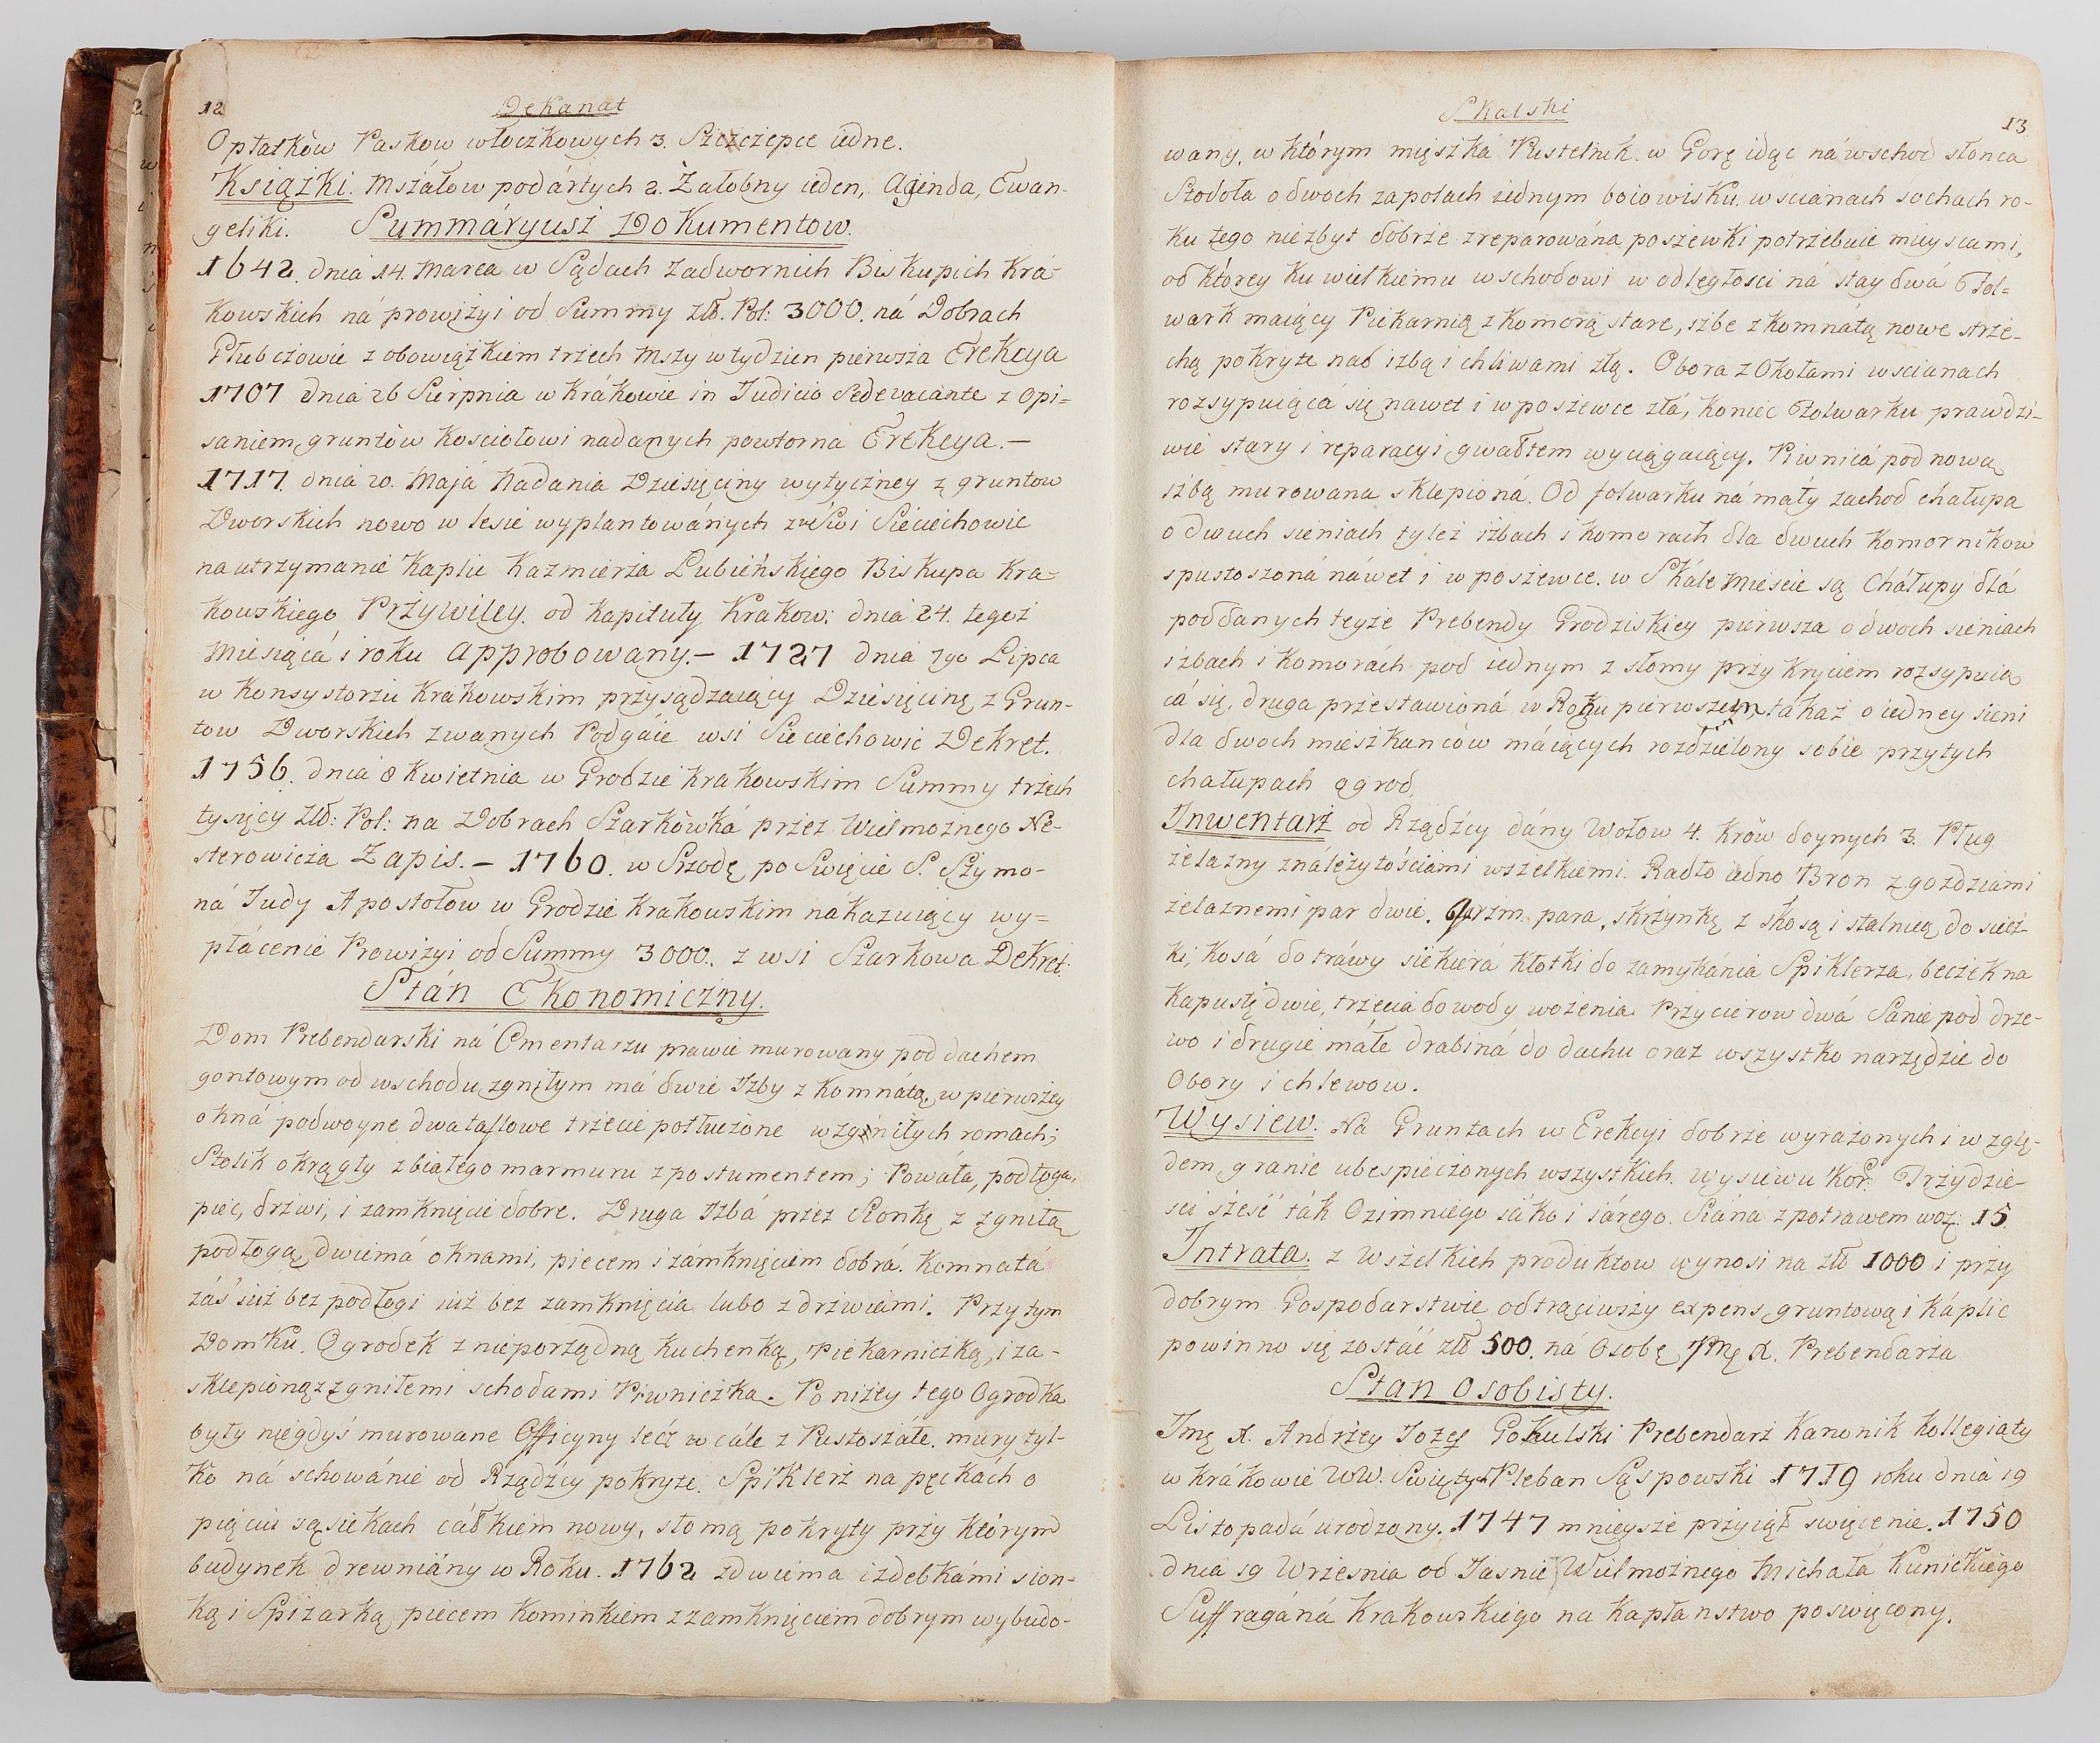 12
Dekanat
Opłatków Pasków włoczkowych 3. Szczepce iedne.
Książki. Mszałow podártych 2. Załobny ieden, Agenda, Ewan-
geliki. Summáryusż Dokumentow.
1642. dnia 14. Marca w Sądach Zadwornich Biskupich Krá-
kowskich ná prowiżyi od Summy złł. Pol: 3000. ná Dobrach
Głubczowie z obowiążkiem trzech Mszy w tydzien pierwsża Erekcya
1707 dnia 26 Sierpnia w Krákowie in Judicio Sede vacante z opi=
saniem gruntów Kosciołowi nadanych powtorna Erekcya.—
1717. dniá 20. Májá Nadania Dziesięciny wytyczney z gruntow
Dworskich nowo w lesie wyplantowánych ze Wsi Sieciechowic
na utrzymanie Kaplic Kazmierża Łubieńskiego Biskupa Kra=
kowskiego Prżywiley. od Kapituły Krakow: dnia 24. tegoż
Miesiącá i roku approbowany.— 1727 dnia 7go Lipca
w Konsystorżu Krakowskim przysądzaiący Dziesięcinę z Grun-
tow Dworskich zwanych Podgáie wsi Sieciechowic Dekret.
1756. dnia 8 Kwietnia w Grodzie Krakowskim Summy trżech
tysięcy złł: Pol: na Dobrach Szarkówká przez Wielmożnego Ne-
sterowicza Zapis.— 1760. w Srzodę po Swięcie S. Sżymo-
ná Judy Apostołow w Grodzie Krakowskim nákazuiący wy=
płácenie Prowiżyi od Summy 3000. z wsi Szarkowa Dekret.
Stán Ekonomiczny.
Dom Prebendarski ná Cmentarzu prawie murowany pod dachem
gontowym od wschodu zgniłym má dwie Izby z komnátą, w pierwszey
okná podwoyne dwa taflowe trżecie potłuczone w zgniłych romach;
Stolik okrągły z białego marmuru z postumentem; Powáła, podłoga,
piec, drżwi, i zamknięcie dobre. Druga Izbá przez Sionkę z zgniłą
podłogą, dwiemá oknami, piecem i zámknięciem dobrá. Komnatá
záś iuż bez podłogi iuż bez zamknięcia lubo z drżwiami. Przy tym
Domku. Ogrodek z nieporządną kuchenką, Piekarnicżką, i za-
sklepioną z zgniłemi schodami Piwnicżka. Poniżey tego Ogrodka
były niegdyś murowane Officyny lecż w cále z Pustosżáłe. mury tyl-
ko ná schowánie od Rządzcy pokryte. Spiklerż na pęckách o
pięciu sąsiekach cáłkiem nowy, słomą pokryty przy którym
budynek drewniány w Roku. 1762 z dwiema izdebkami sion-
ką i Spiżarką, piecem kominkiem z zamknięciem dobrym wybudo-
Skalski
13
wany, w którym mięszká Pustelnik. w Gorę idąc ná wschod słonca
Stodoła o dwoch zapolach iednym boiowisku. w scianach sochach ro-
ku tego niezbyt dobrze zreparowána poszewki potrżebuie mieyscami,
od którey ku wielkiemu wschodowi w odległosci ná stay dwá Fol=
wark maiący Piekarnią z komorą stare, izbe z komnátą nowe strze-
chą pokryte nad izbą i chliwami złą. Obora z Okołami w scianach
rozsypuiącá się nawet i w poszewce złá, koniec Folwarku prawdzi-
wie stary i reparacyi gwałtem wyciągaiący. Piwnicá pod nową
izbą murowana sklepioná. Od folwarku ná máły zachod chałupa
o dwuch sieniach tyleż izbach i komorach dla dwuch komornikow
spustoszoná náwet i w poszewce. w Skále Miescie są Cháłupy dlá
poddanych teyże Prebendy Grodziskiey pierwsza o dwoch sieniach
izbach i komorách pod iednym z słomy przykryciem rozsypuią
cá się, druga przestawioná w Roku pierwszym tákaż o iedney sieni
dla dwoch mieszkanców máiących rozdzielony sobie przy tych
chałupach ogrod.
Inwentarż od Rządzcy dány Wołow 4. Krów doynych 3. Pług
żelazny z náleżytościámi wszelkiemi. Radło iedno Bron z gozdziami
żelaznemi par dwie. para, skrżynkę z kosą i stalnicą do siecż-
ki, Kosá do tráwy siekierá kłotki do zamykánia Spiklerza, beczek na
kapustę dwie, trzecia do wody wożenia. Przycierow dwá Sanie pod drze-
wo i drugie máłe drabiná do dachu oraz wszystko narzędzie do
Obory i chlewow.
Wysiew. Na Gruntach w Erekcyi dobrze wyrażonych i wzglę-
dem granic ubespieczonych wszystkich. Wysiewu Kor. Trzydzie-
sci sżesć ták Ozimniego iáko i iárego. Siána z potrawem woz: 15.
Intrata. z Wszelkich produktow wynosi na złł 1000 i przy
dobrym Gospodarstwie odtrąciwszy expens gruntową i káplic
powinno się zostáć złł 500. ná Osobę Jmę X. Prebendarża
Stan Osobisty.
Jmę X. Andrżey Jozef Gokulski Prebendarż Kanonik Kollegiaty
w Krákowie WW. Swiętych Pleban Sąspowski 1719 roku dnia 19
Listopadá urodzony. 1747 mnieysze przyiął swięcenie. 1750
dnia 19 Wrzesnia od Jasnie Wielmożnego Michała Kunickiego
Suffragáná Krakowskiego na Kapłanstwo poswięcony.